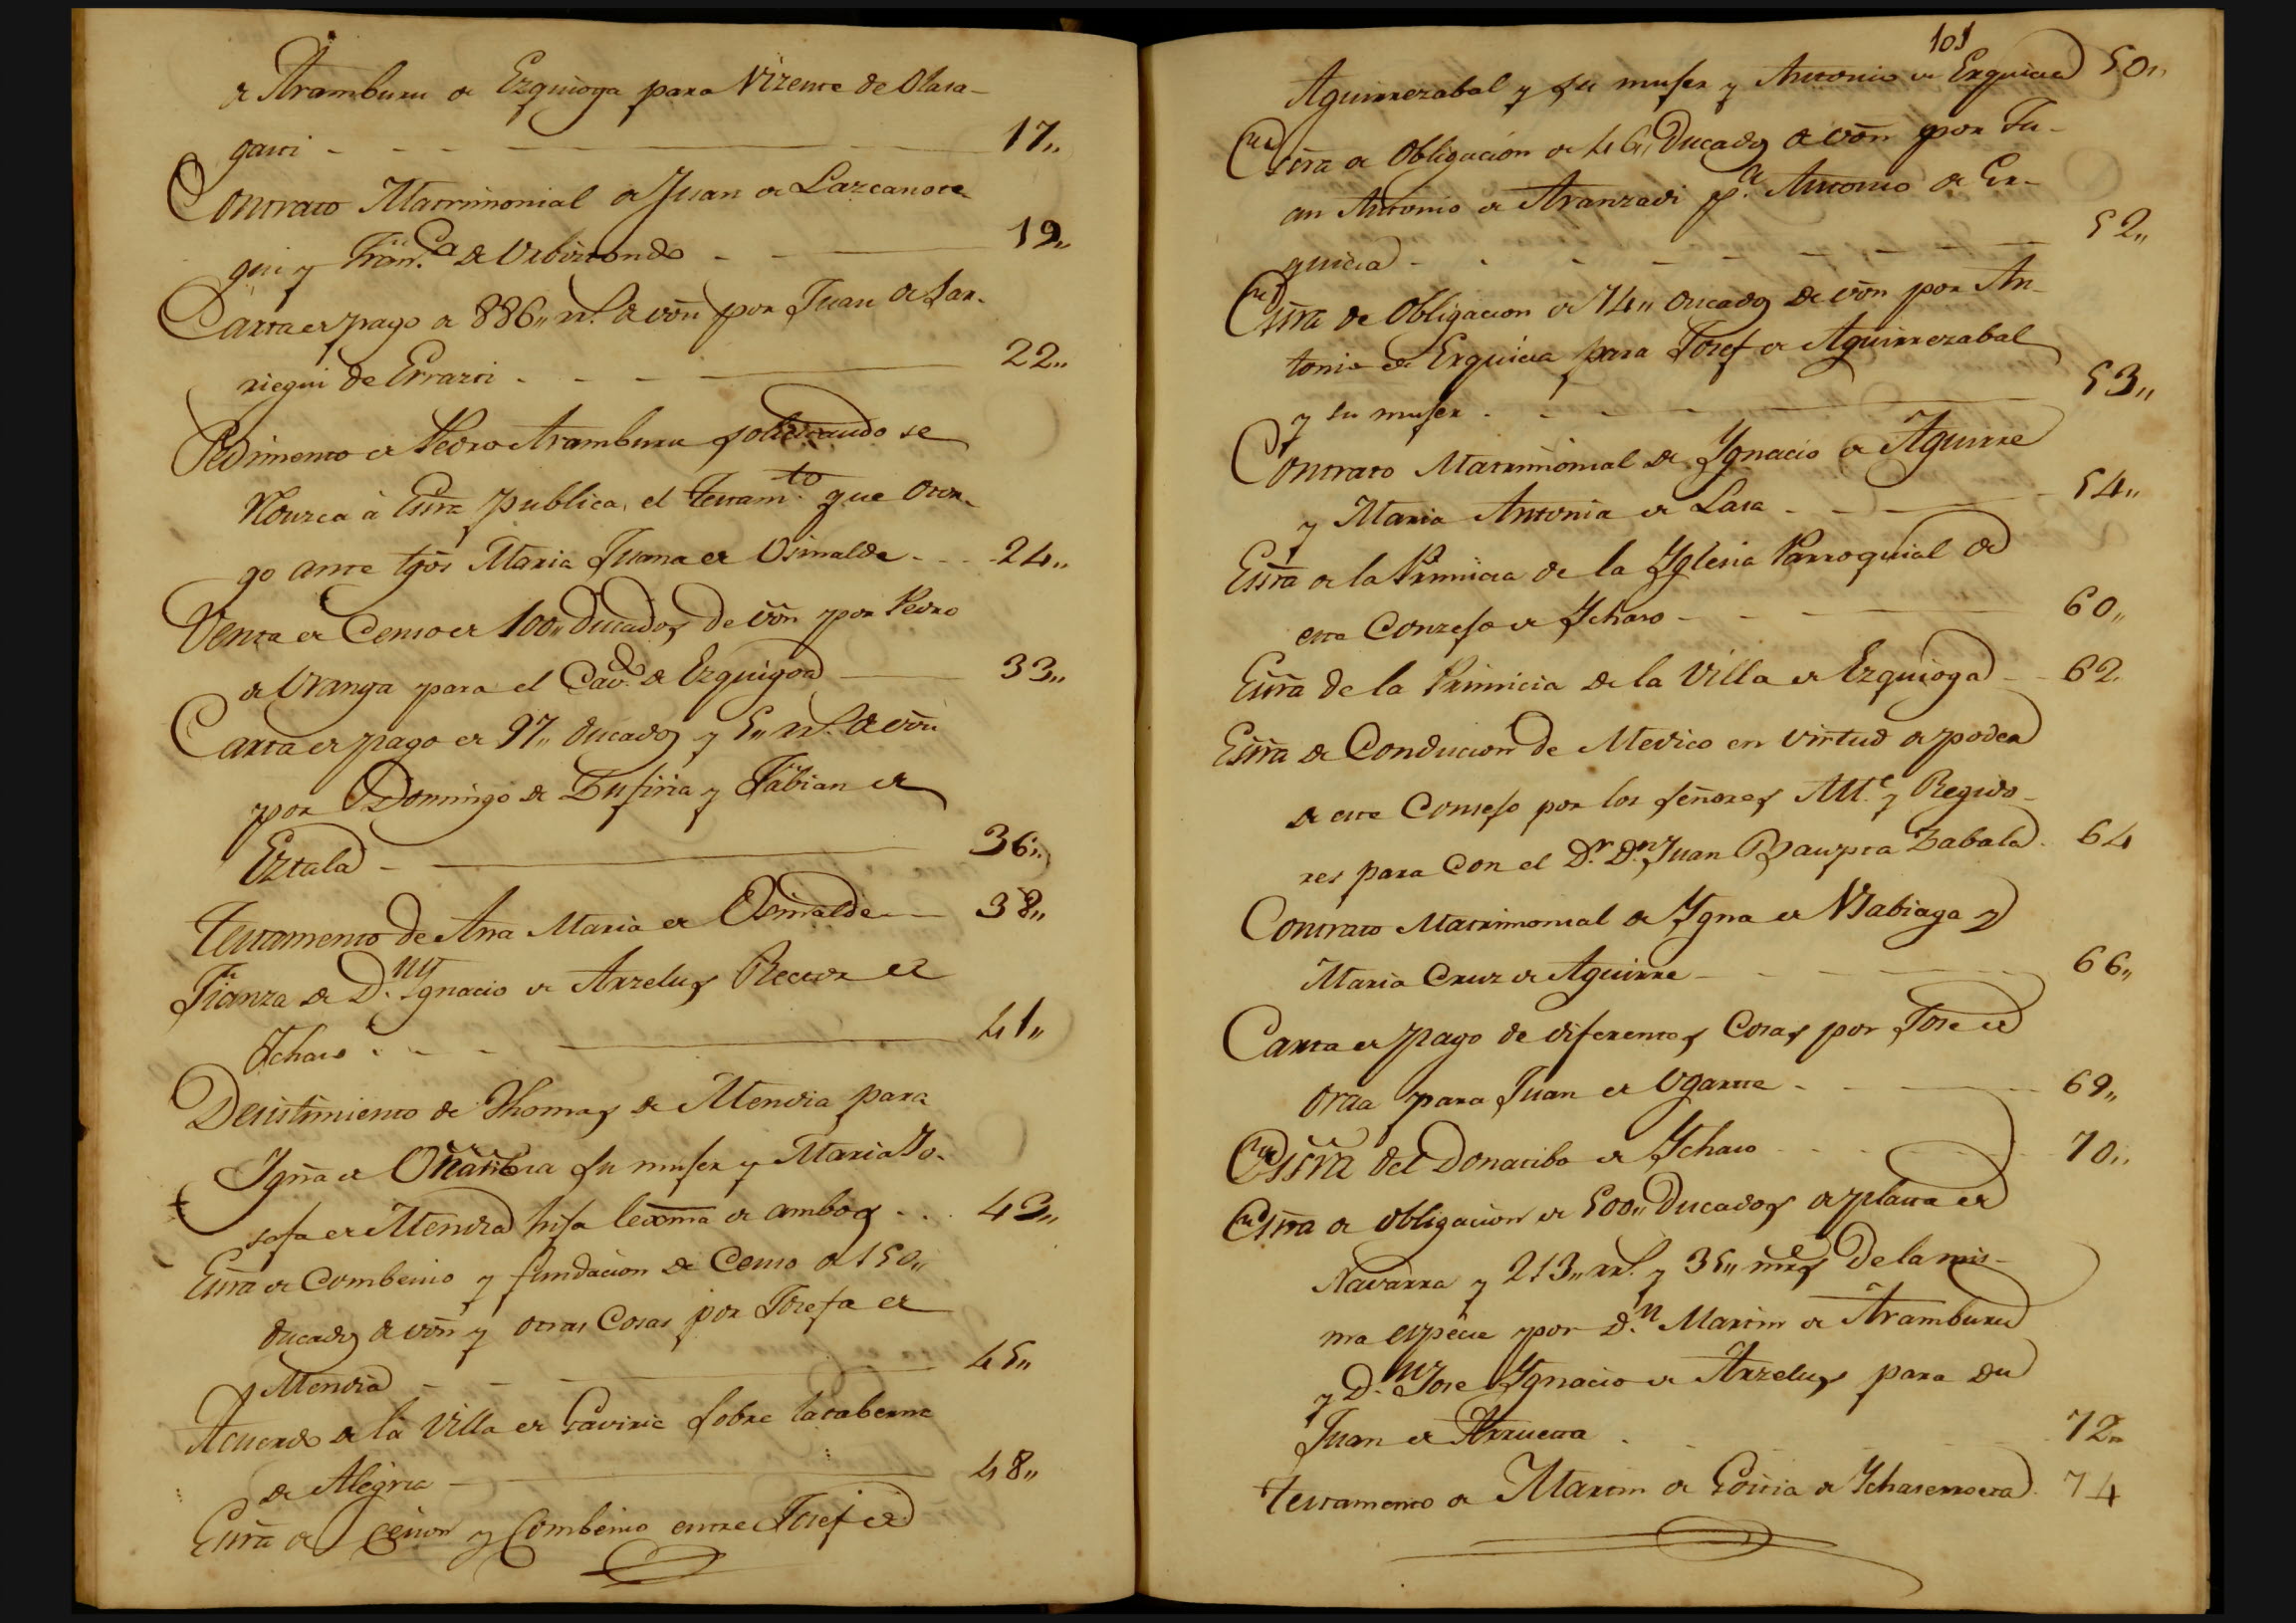 de Aramburu de Ezquioga para Vizente de Olasa-
gasti - - - 17,,
Contrato Matrimonial de Juan de Lazcanote-
gui y Fran.ca de Urbiztondo - - 19,,
Carta de pago de 886,, rr.s de von por Juan de Sar-
riegui de Errazti - - - - 22,,
Pedimento de Pedro Aramburu solicitando se
redusca à Essra publica, el testam.to que otor-
go ante tgos Maria Juana de Osinalde - - - 24,,
Venta de Censo de 100,, Ducados de von por Pedro
de Uranga para el Cav.do de Ezquigoa 33,,
Carta de pago de 97,, ducados y 5,, rr.s de von
por Domingo de Zufiria y Fabian de
Eztala - 36,,
Testamento de Ana Maria de Osinalde - 38,,
Fianza de D.n Ygnacio de Arzelus Rector de
Ychaso - - - 41,,
Desistimiento de Thomas de Mendia para
Ygna de Oñatibia su muger y Maria Jo-
sefa de Mendia hija lexma de ambos - . . 43,,
Essra de Combenio y fundacion de Censo de 150,,
ducados de von y otras Cosas por Josefa de
Mendia - - - 45,,
Acuerdo de la Villa de Gaviria sobre la taberna
de Alegria - 48,,
Essra de Cesion y Combenio entre Josef de
101
Aguirrezabal y su muger y Antonio de Ezquiaga 50,,
Essra de Obligacion de 46,, Ducados de von por Ju-
an Antonio de Aranzadi p.a Antonio de Ez-
quiaga - - - - - - - 52,,
Essra de Obligacion de 74,, ducados de von por An-
tonio de Ezquiaga para Josef de Aguirrezabal
y su muger - - - - 53,,
Contrato Matrimonial de Ygnacio de Aguirre
y Maria Antonia de Lasa - - - 54,,
Essra de la Primicia de la Yglesia Parroquial de
este Conzejo de Ychaso - - - - 60,,
Essra de la Primicia de la Villa de Ezquioga - - 62.
Essra de Conducion de Medico en virtud de poder
de este Consejo por los señores All.e y Regido-
res para con el D.r D.n Juan Baupta Zabala . 64
Contrato Matrimonial de Ygna de Ysabiaga y
Maria Cruz de Aguirre - - - 66,,
Carta de pago de diferentes Cosas por Jose de
Oria para Juan de Ugarte - - - 69,,
Essra del Donatibo de Ychaso - - - 70,,
Essra de obligacion de 500,, Ducados de plata de
Navarra y 213,, rr.s y 35,, mrs De la mis-
ma especie por D.n Martin de Aramburu
y D.n Jose Ygnacio de Arzelus para Dn
Juan de Arrueta . - 72,,
Testamento de Martin de Goitia de Ychasenroeta . 74